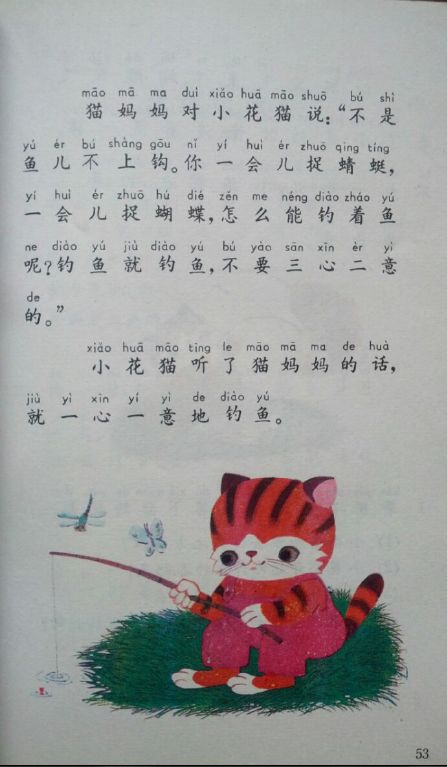 māo mā ma duì xiǎo huā māo shuō bú shì
猫妈妈对小花猫说：“不是
yú ér bú shàng gōu nǐ yí huì ér zhuō qīng tíng
鱼儿不上钩。你一会儿捉蜻蜓，
yí huì ér zhuō hú dié zěn me néng diào zháo yú
一会儿捉蝴蝶，怎么能钓着鱼
ne diào yú jiù diào yú bú yào sān xīn èr yì
呢？钓鱼就钓鱼，不要三心二意
de
的。”
xiǎo huā māo tīng le māo mā ma de huà
小花猫听了猫妈妈的话，
jiù yì xīn yí yì de diào yú
就一心一意地钓鱼。
53